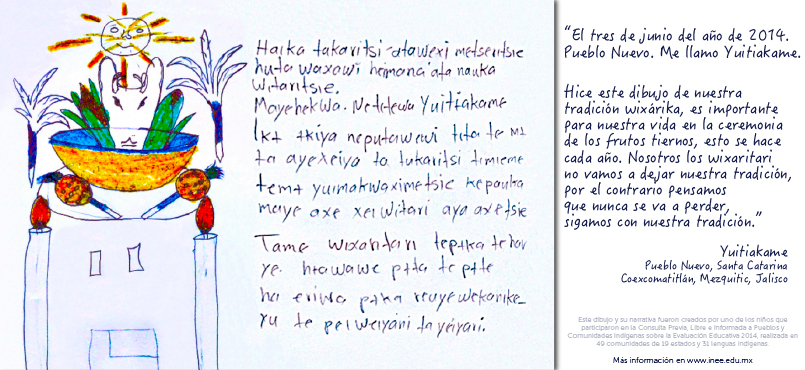 Haika takaritsi-atawexi metseritsie
huta waxawi heimana'ata nauka
witaritsie.
Mayehekwa. Netetewa Yuitiakame
Ikɨ tkiya neputawewi tita te mɨ
ta ayexeiya ta tukaritsi timieme
temɨ yuimakwaximetsie kepauka
maye axe xei witari aya axetsie
Tame wixaritari tepɨka te
ye. hɨawawe pɨta te pɨte
ha eriwa pɨka
te pei weiyani ta yeiyari.
“El tres de junio del año de 2014.
Pueblo Nuevo. Me llamo Yuitiakame.
Hice este dibujo de nuestra
tradición wixárika, es importante
para nuestra vida en la ceremonia
de los frutos tiernos, esto se hace
cada año. Nosotros los wixaritari
no vamos a dejar nuestra tradición,
por el contrario pensamos
que nunca se va a perder,
sigamos con nuestra tradición.”
Yuitiakame
Pueblo Nuevo, Santa Catarina
Coexcomatitlán, Mezquitic, Jalisco
Este dibujo y su narrativa fueron creados por uno de los niños que
participaron en la Consulta Previa, Libre e Informada a Pueblos y
Comunidades Indígenas sobre la Evaluación Educativa 2014, realizada en
49 comunidades de 19 estados y 31 lenguas indígenas.
Más información en www.inee.edu.mx